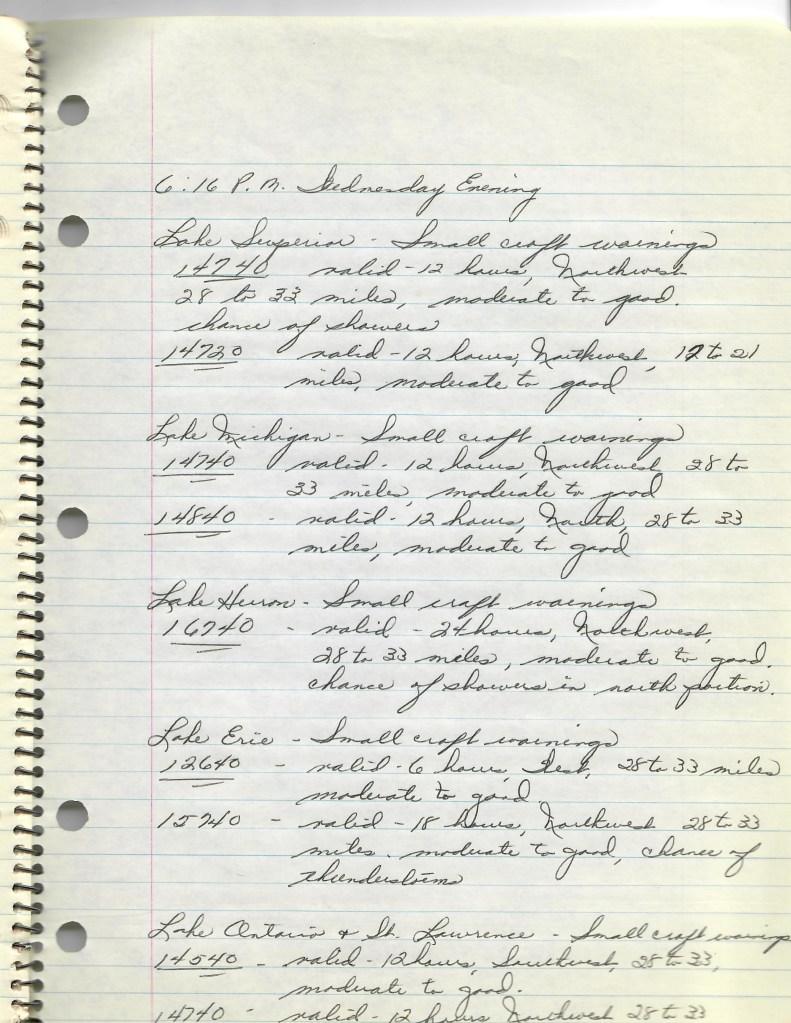 6:16 P.M. Wednesday Evening
Lake Superior - Small craft warnings
14740 valid - 12 hours, Northwest
28 to 33 miles, moderate to good.
chance of showers
14720 valid - 12 hours, Northwest, 17 to 21
miles, moderate to good
Lake Michigan - Small craft warnings
14740 valid - 12 hours, Northwest 28 to
33 miles, moderate to good
14840 - valid - 12 hours, North, 28 to 33
miles, moderate to good
Lake Huron - Small craft warnings
16740 - valid - 24 hours, Northwest,
28 to 33 miles, moderate to good.
chance of showers in north portion.
Lake Erie - Small craft warnings
12640 - valid - 6 hours, West, 28 to 33 miles
moderate to good
15740 - valid - 18 hours, Northwest 28 to 33
miles. moderate to good, chance of
thunderstorms
Lake Ontario & St. Lawrence - Small craft warnings
14540 - valid - 12 hours, Southwest, 28 to 33,
moderate to good.
14740 - valid - 12 hours Northwest 28 to 33